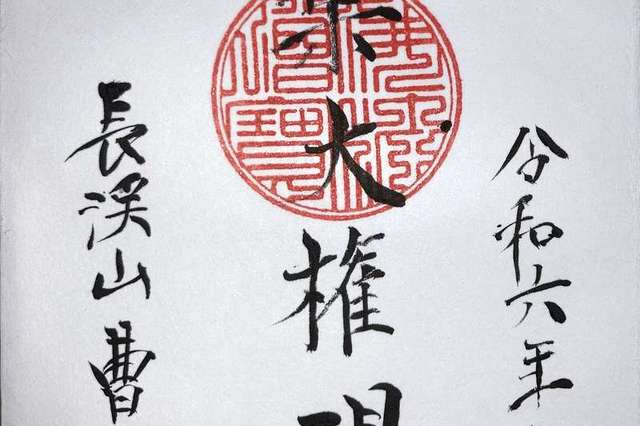 令和六年
大権現
長渓山曹